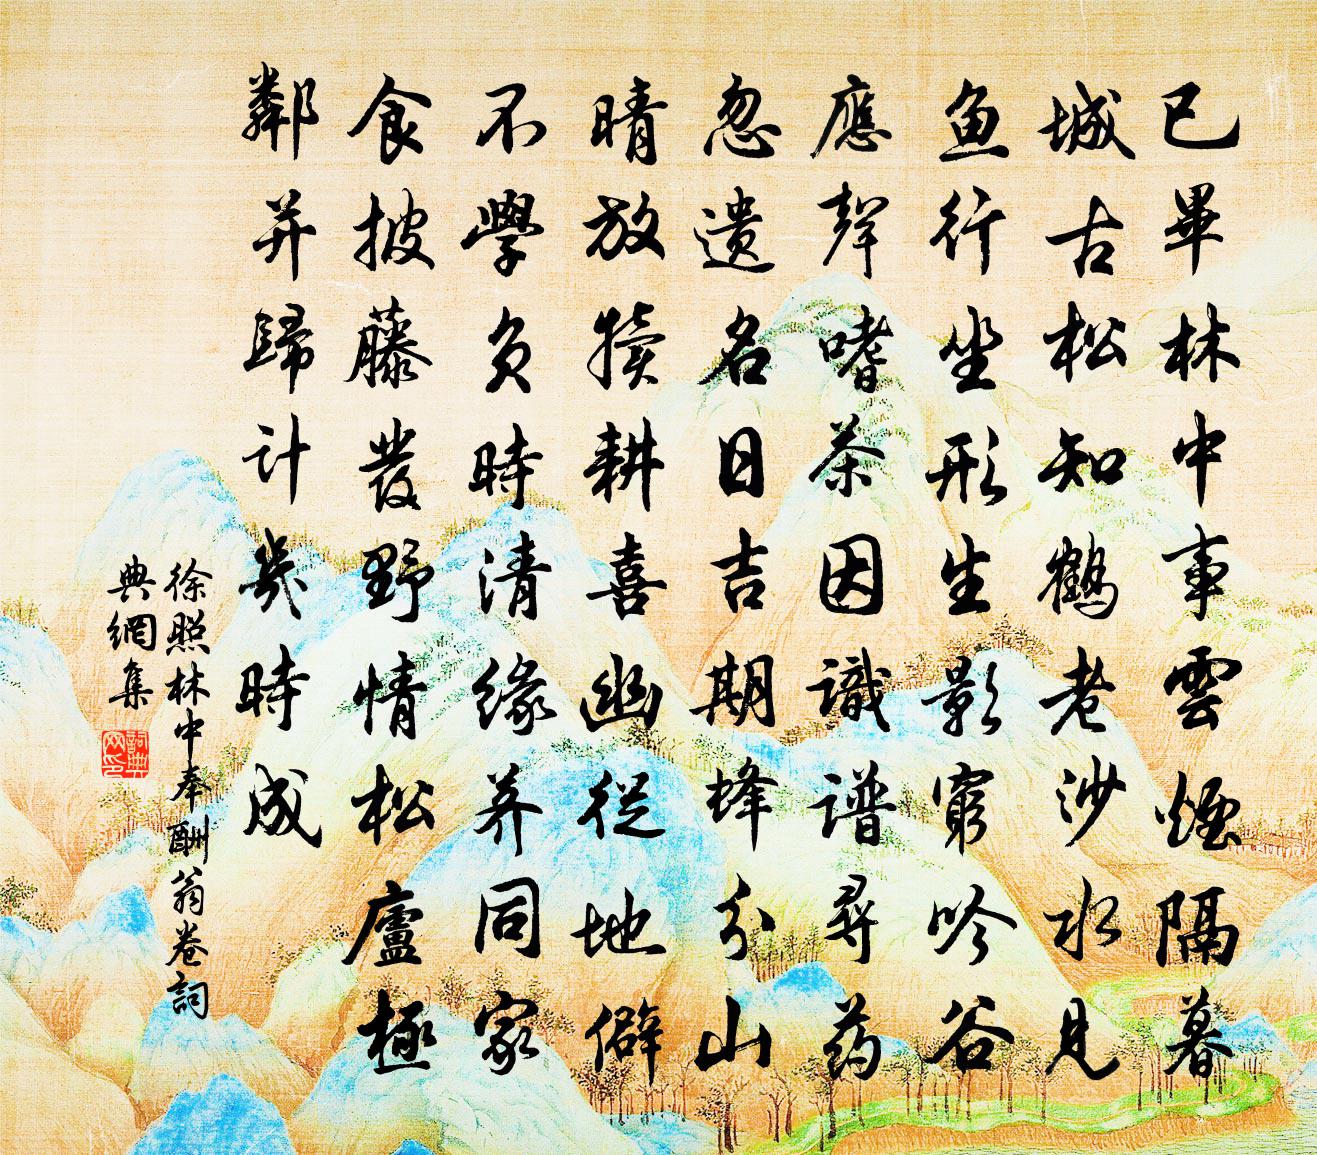 已畢林中事雲煙隔暮
城古松知鶴老沙水見
魚行坐形生影窮吟谷
應聲嗜茶因識譜尋药
忽遗名日吉期蜂分山
晴放犢耕喜幽從地僻
不學負時清緣养同家
食披藤發野情松廬極
鄰并歸计幾時成
徐照林中奉酬翁卷詞
典網集
詞典